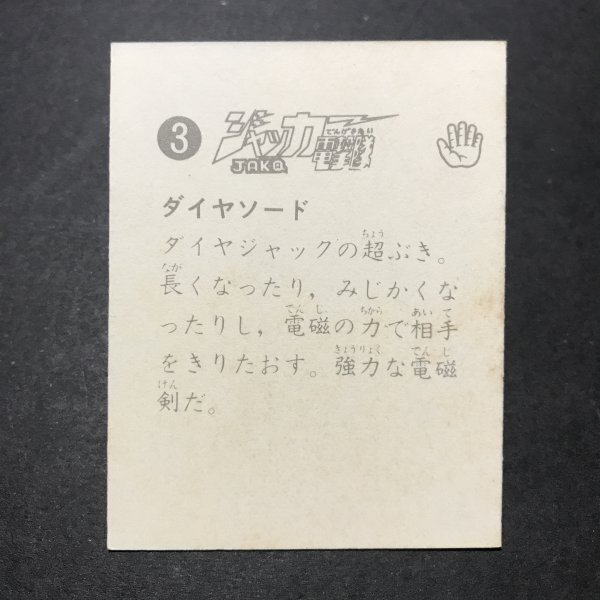 3
ジャッカー電撃隊
でんげきたい
JAKQ
ダイヤソード
ダイヤジャックの超ぶき。
長くなったり，みじかくな
ったりし，電磁の力で相手
をきりたおす。強力な電磁
剣だ。